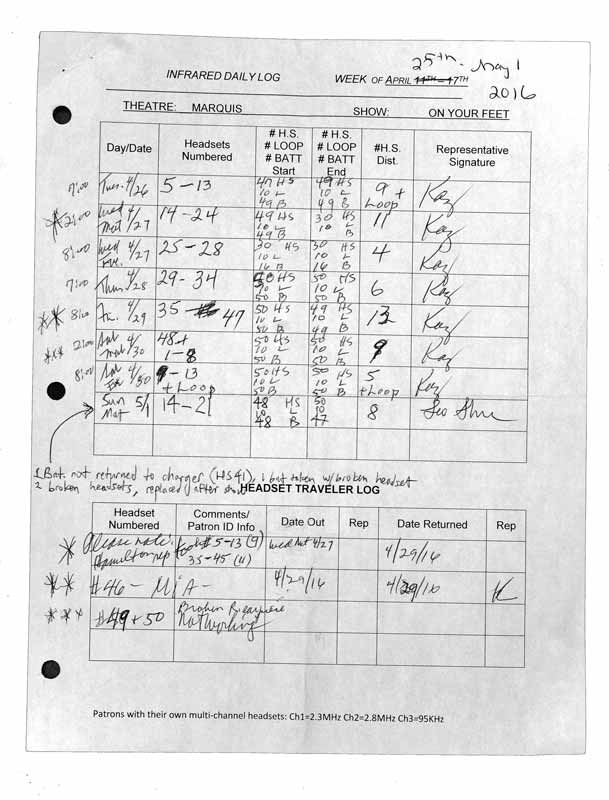 25th - May 1
INFRARED DAILY LOG WEEK OF APRIL 11TH - 17TH
2016
THEATRE: MARQUIS SHOW: ON YOUR FEET
Day/Date Headsets Numbered # H.S. # LOOP # BATT Start # H.S. # LOOP # BATT End #H.S. Dist. Representative Signature
7:00 Tues. 4/26 5-13 47 HS 10 L 49 B 49 HS 10 L 49 B 9 + Loop Kay
* 2:00 Wed Mat 4/27 14-24 49 HS 10 L 49 B 30 HS 10 L B 11 Kay
8:00 Wed Eve. 4/27 25-28 30 HS 10 L 16 B 50 HS 10 L 16 B 4 Kay
7:00 Thu. 4/28 29-34 50 HS 10 L 50 B 50 HS 10 L 50 B 6 Kay
** 8:00 Fri. 4/29 35 47 50 HS 10 L 50 B 50 HS 10 L 49 B 13 Kay
*** 2:00 Sat Mat 4/30 48+ 1-8 50 HS 10 L 50 B 50 HS 10 L 50 B 9 Kay
8:00 Sat Eve 4/30 9-13 + Loop 50 HS 10 L 50 B 50 HS 10 L 50 B 5 + Loop Kay
Sun Mat 5/1 14-21 48 HS 10 L 48 B 50 HS 10 L 47 8
1 Bat. not returned to charger (HS41), 1 bat taken w/ broken headset
2 broken headsets, replaced after show
HEADSET TRAVELER LOG
Headset Numbered Comments/ Patron ID Info Date Out Rep Date Returned Rep
* Please note: Hamilton rep took # 5-13 (9) 35-45 (11) Wed Mat 4/27 4/29/16
** #46 - MIA - 4/29/16 4/29/16 K
*** #49 + 50 Broken Not Working
Patrons with their own multi-channel headsets: Ch1=2.3MHz Ch2=2.8MHz Ch3=95KHz